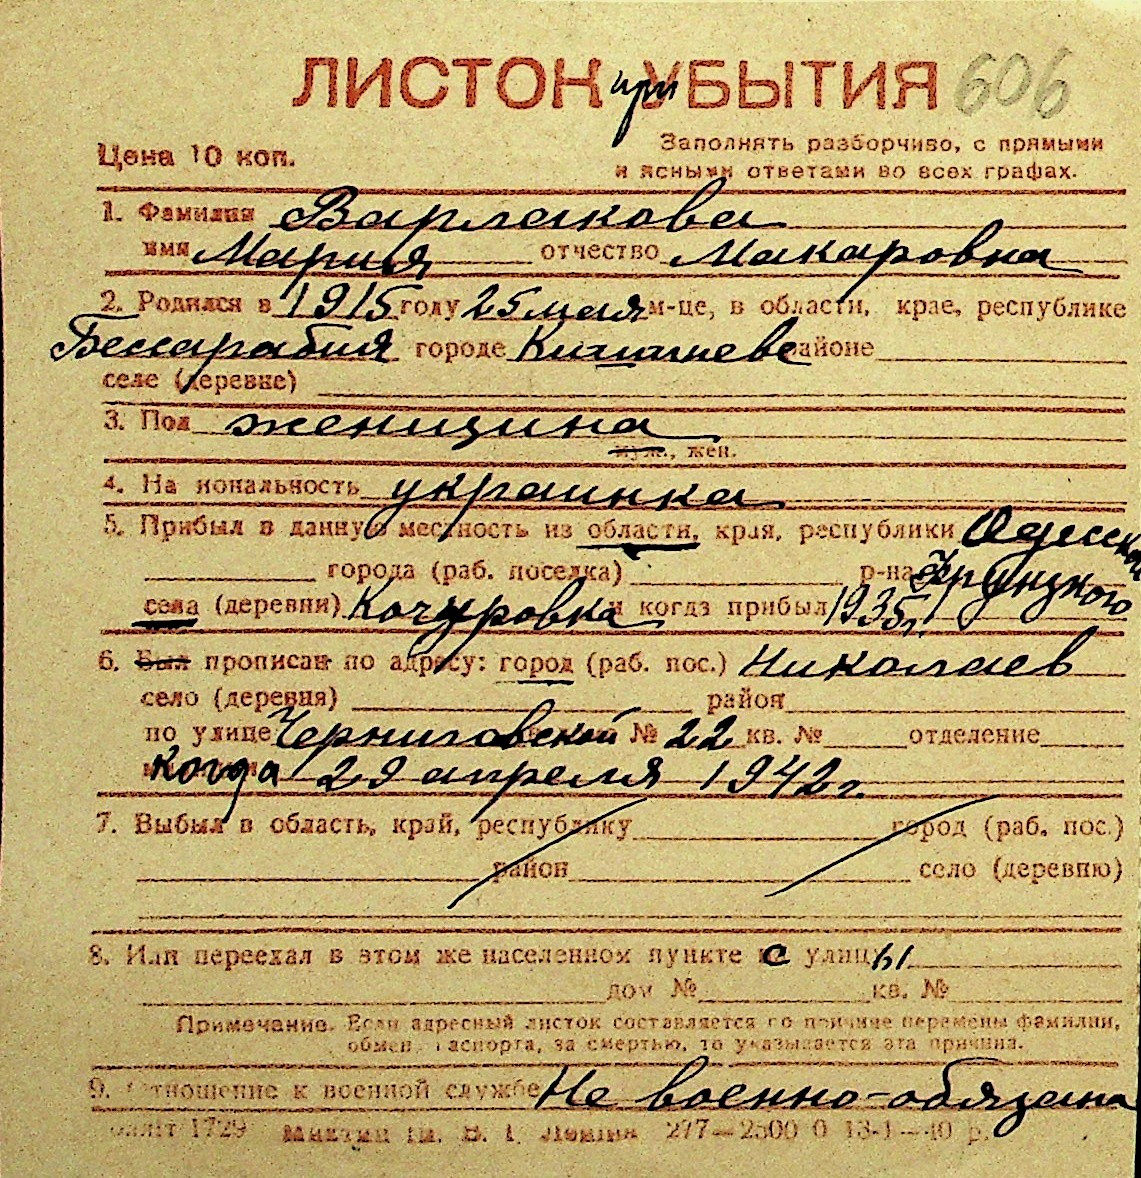 ЛИСТОК при УБЫТИЯ 606
Цена 10 коп.
Заполнять разборчиво, с прямыми
и ясными ответами во всех графах.
1. Фамилия Варлакова
имя Мария отчество Макаровна
2. Родился в 1915 году 25 мая м-це, в области, крае, республике
Бессарабия городе Кишиневе районе
селе (деревне)
3. Пол женщина
муж., жен.
4. На иональность украинка
5. Прибыл в данную местность из области, края, республики Одесской
города (раб. поселка) р-на
села (деревни) Кочуровка и когда прибыл 1935 г.
6. Был прописан по адресу: город (раб. пос.) Николаев
село (деревня) район
по улице Черниговской № 22 кв. № отделение
когда 29 апреля 1942 г.
7. Выбыл в область, край, республику город (раб. пос.)
район село (деревню)
8. Или переехал в этом же населенном пункте с улицы
дом № кв. №
Примечание. Если адресный листок составляется по причине перемены фамилии,
обмен паспорта, за смертью, то указывается эта причина.
9. Отношение к военной службе Не военно-обязана
1729 им. В. І. Леніна 277—2500 0 13-1—40 р.